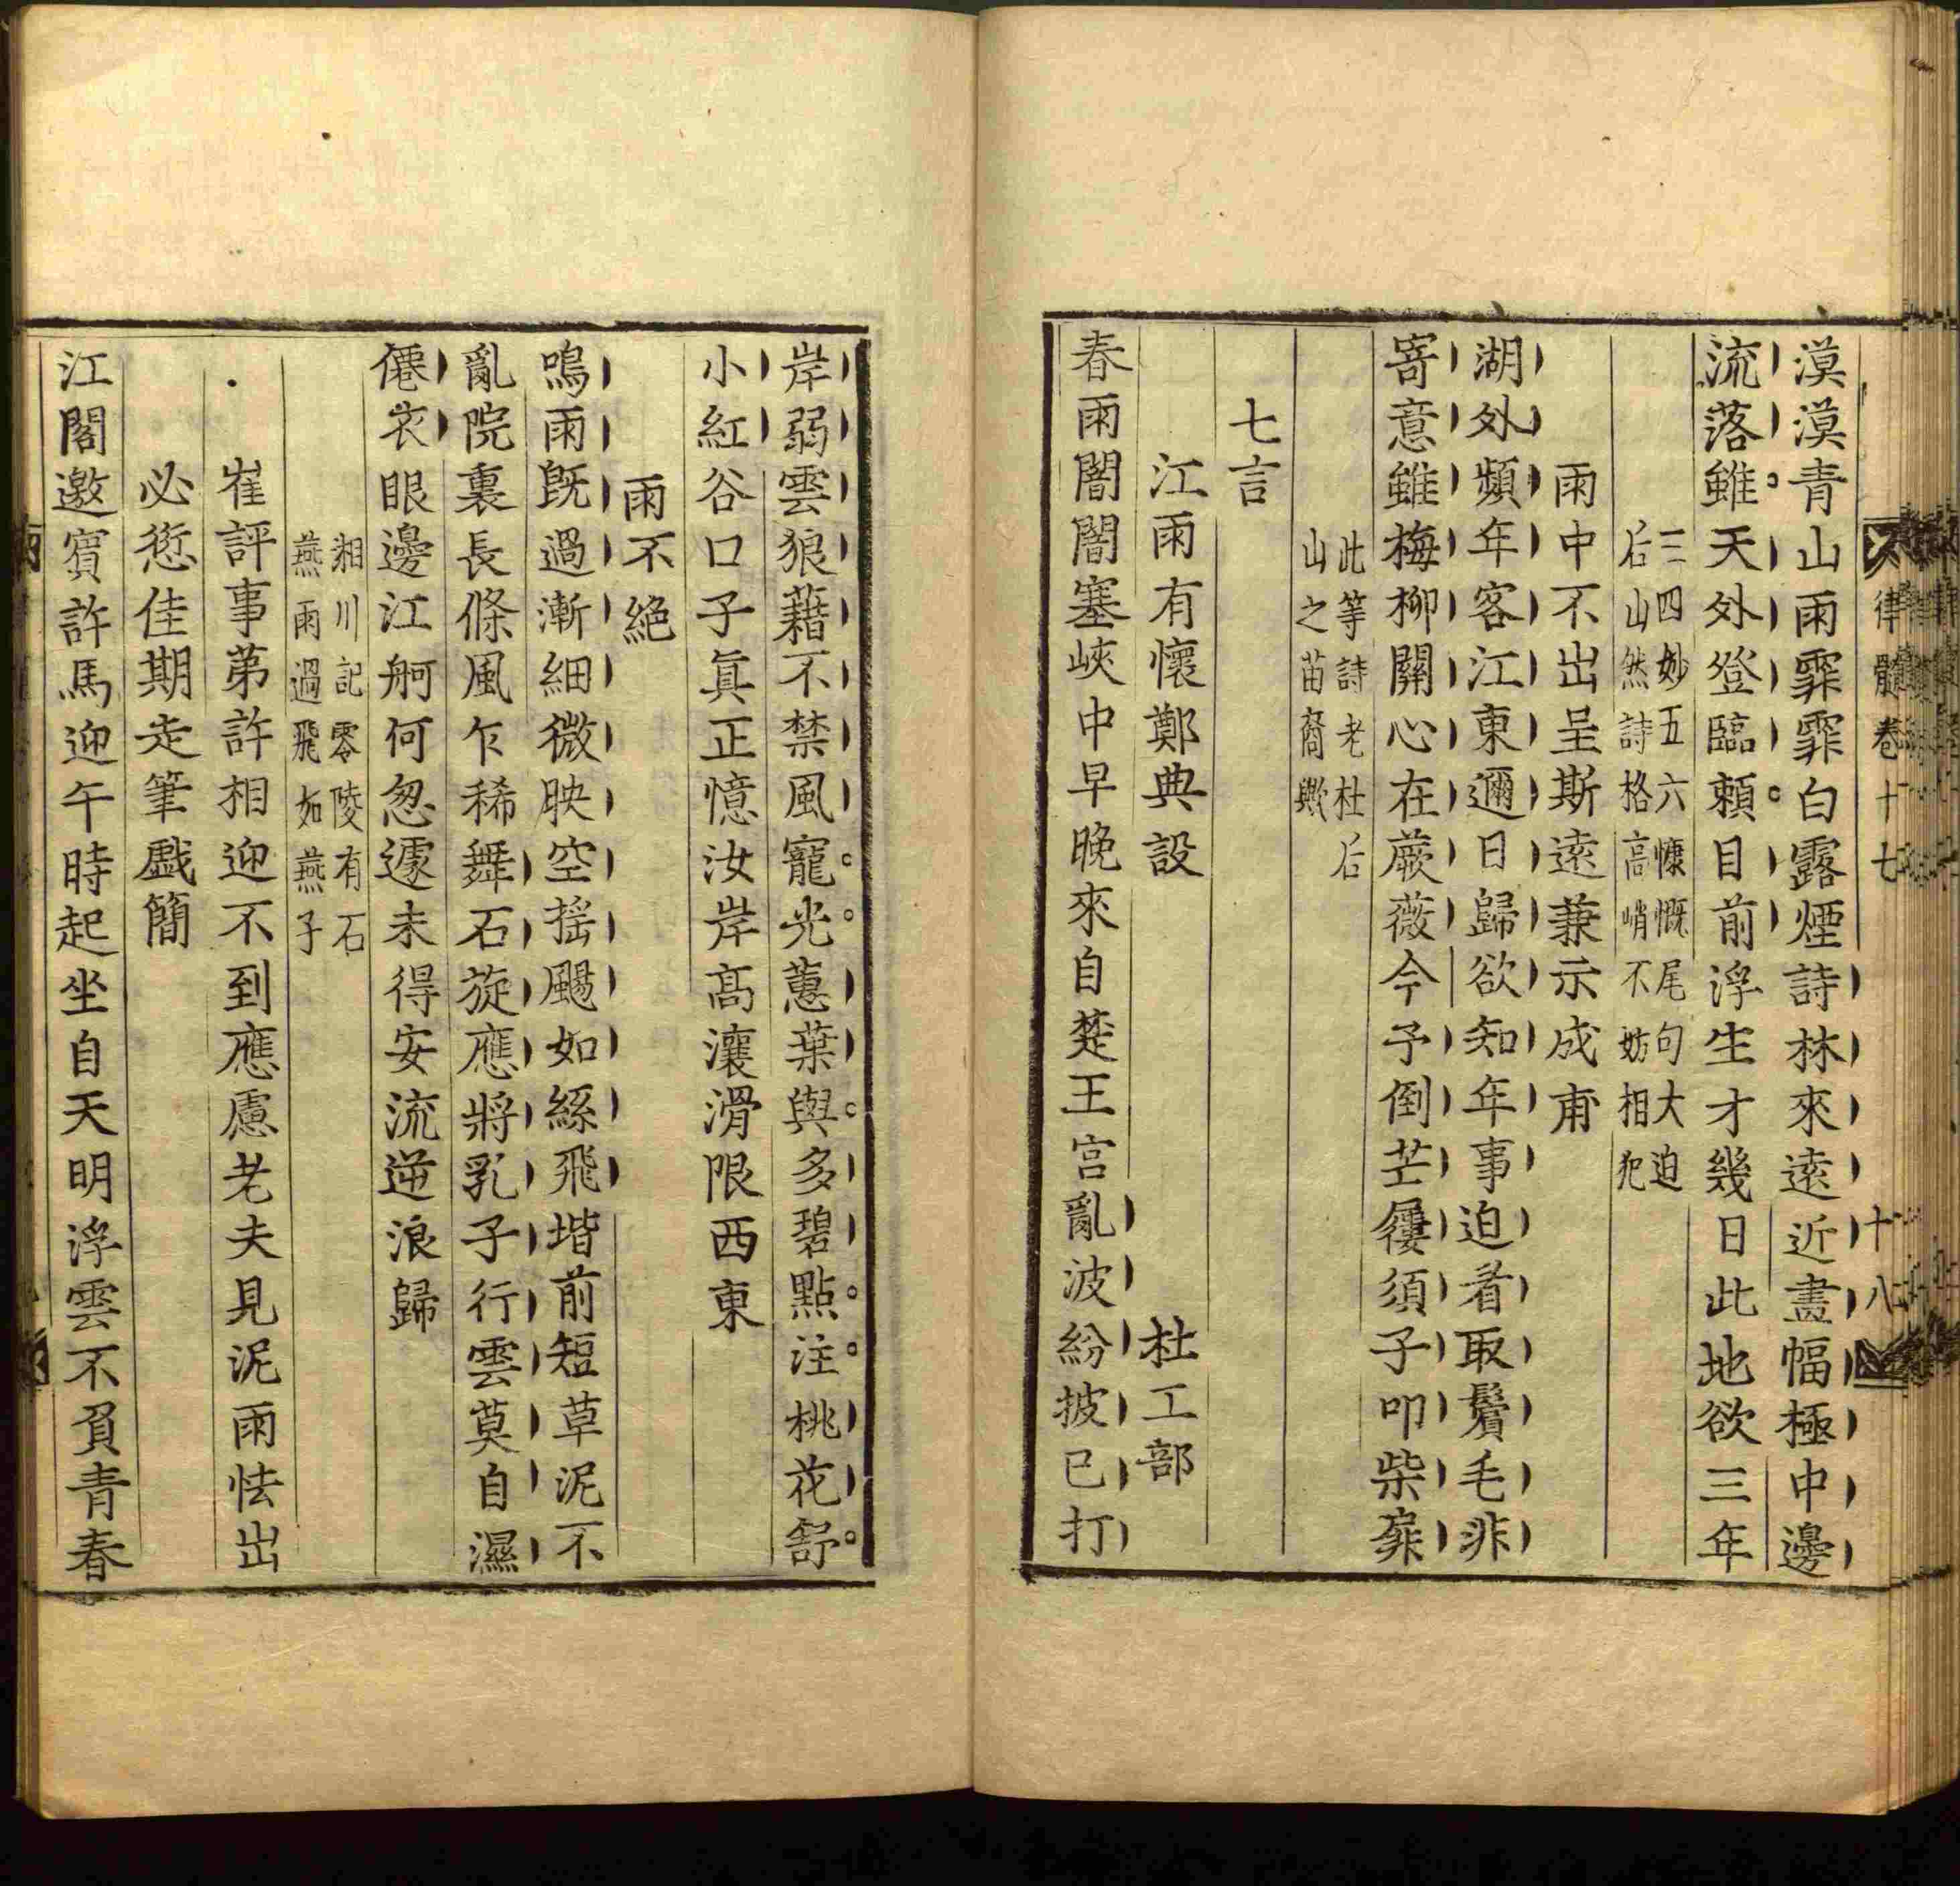 律髓卷十七 十八
漠漠青山雨霏霏白露煙詩林來遠近畫幅極中邊
流落雖天外登臨頼目前浮生才幾日此地欲三年
三四妙五六慷慨尾句大迫
后山然詩格高峭不妨相犯
雨中不出呈斯遠兼示成甫
湖外頻年客江東邇日歸欲知年事迫看取鬢毛非
寄意雖梅柳關心在蕨薇今予倒芒屨須子叩柴扉
此等詩老杜后
山之苗裔歟
七言
江雨有懷鄭典設 杜工部
春雨闇闇塞峽中早晚來自楚王宮亂波紛披已打
岸弱雲狼藉不禁風寵光蕙葉與多碧點注桃花舒
小紅谷口子真正憶汝岸高瀼滑限西東
雨不絕
鳴雨既過漸細微映空搖颺如絲飛堦前短草泥不
亂院裏長條風乍稀舞石旋應將乳子行雲莫自濕
僊衣眼邊江舸何怱遽未得安流逆浪歸
湘川記零陵有石
燕雨過飛如燕子
崔評事弟許相迎不到應慮老夫見泥雨怯出
必愆佳期走筆戯簡
江閣邀賓許馬迎午時起坐自天明浮雲不負青春